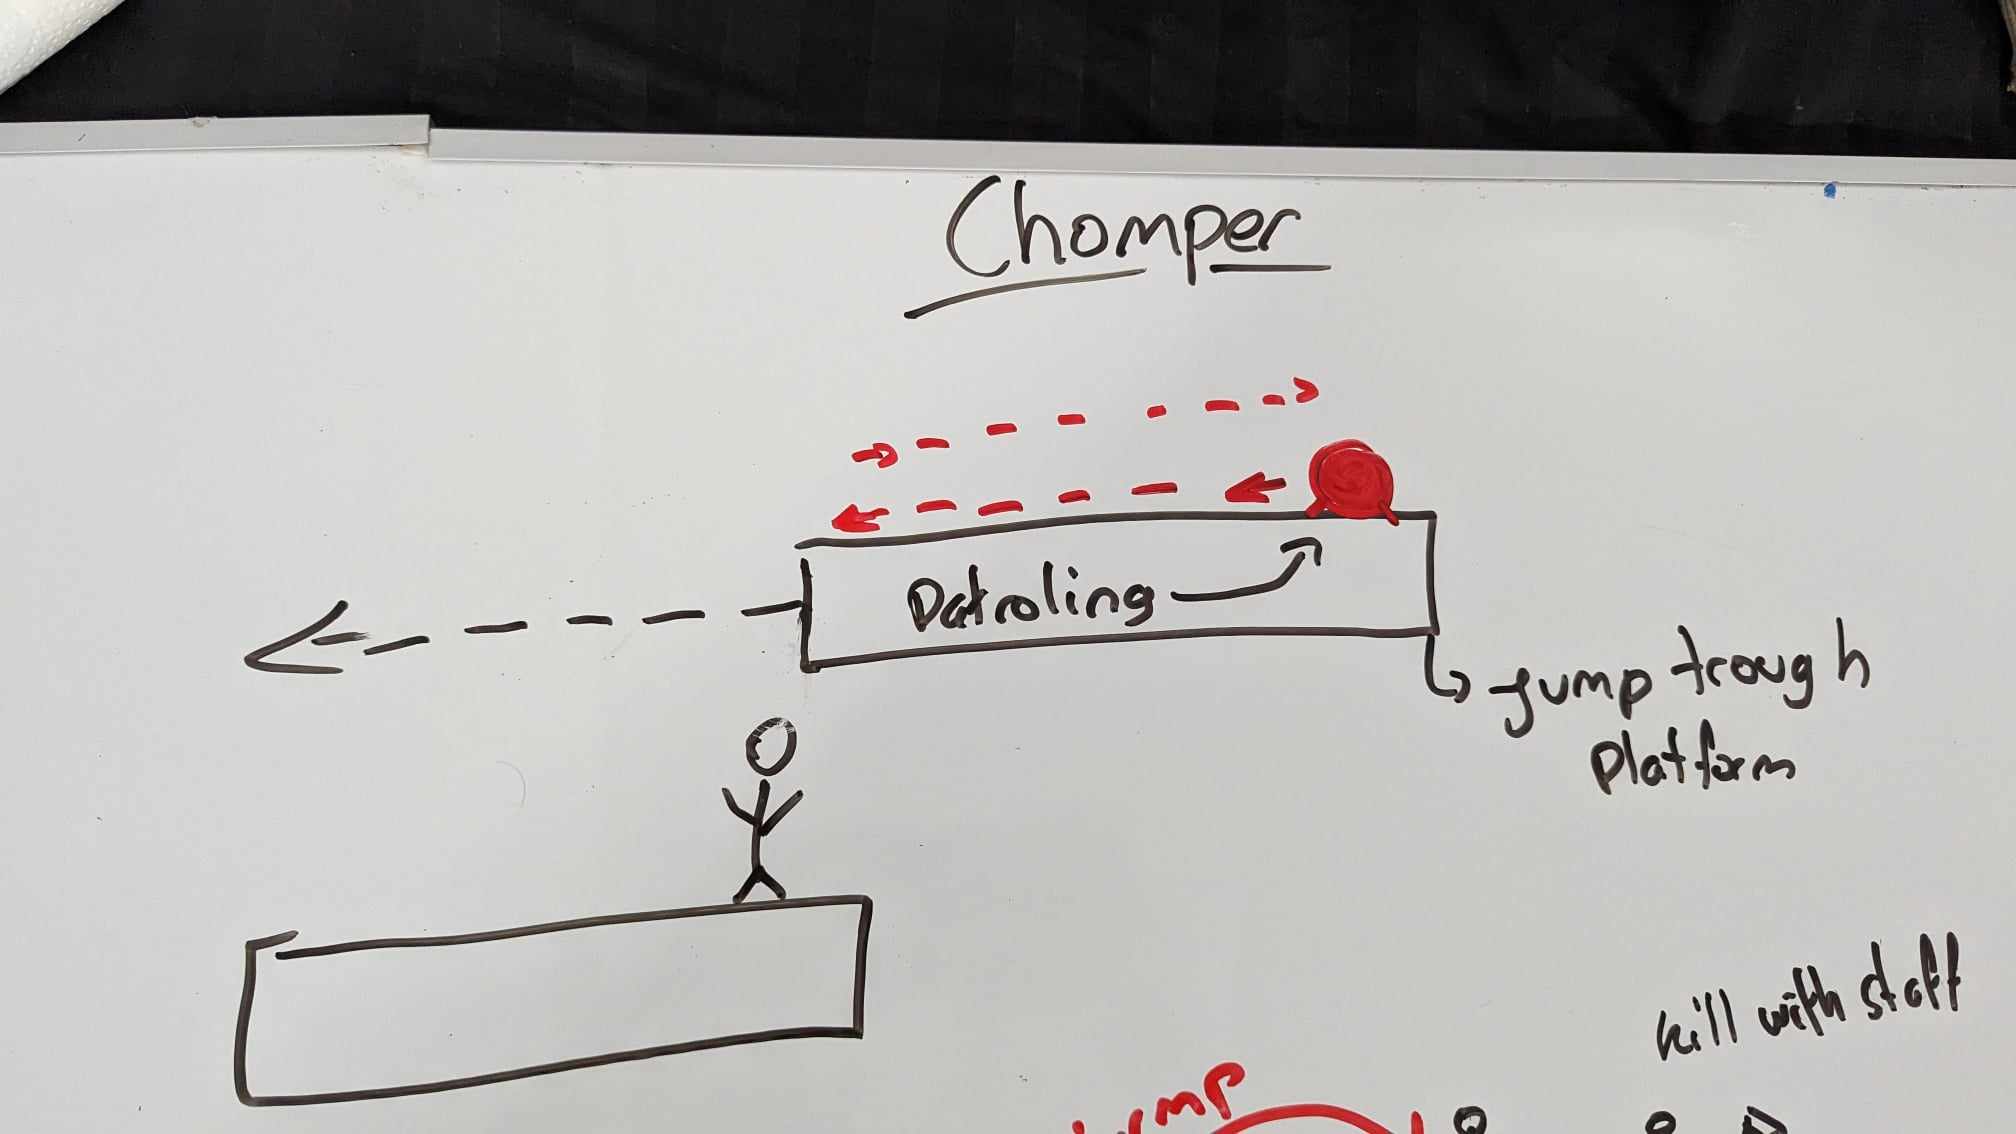 Chomper
Patroling
Jump trough
Platform
kill with staff
Jump